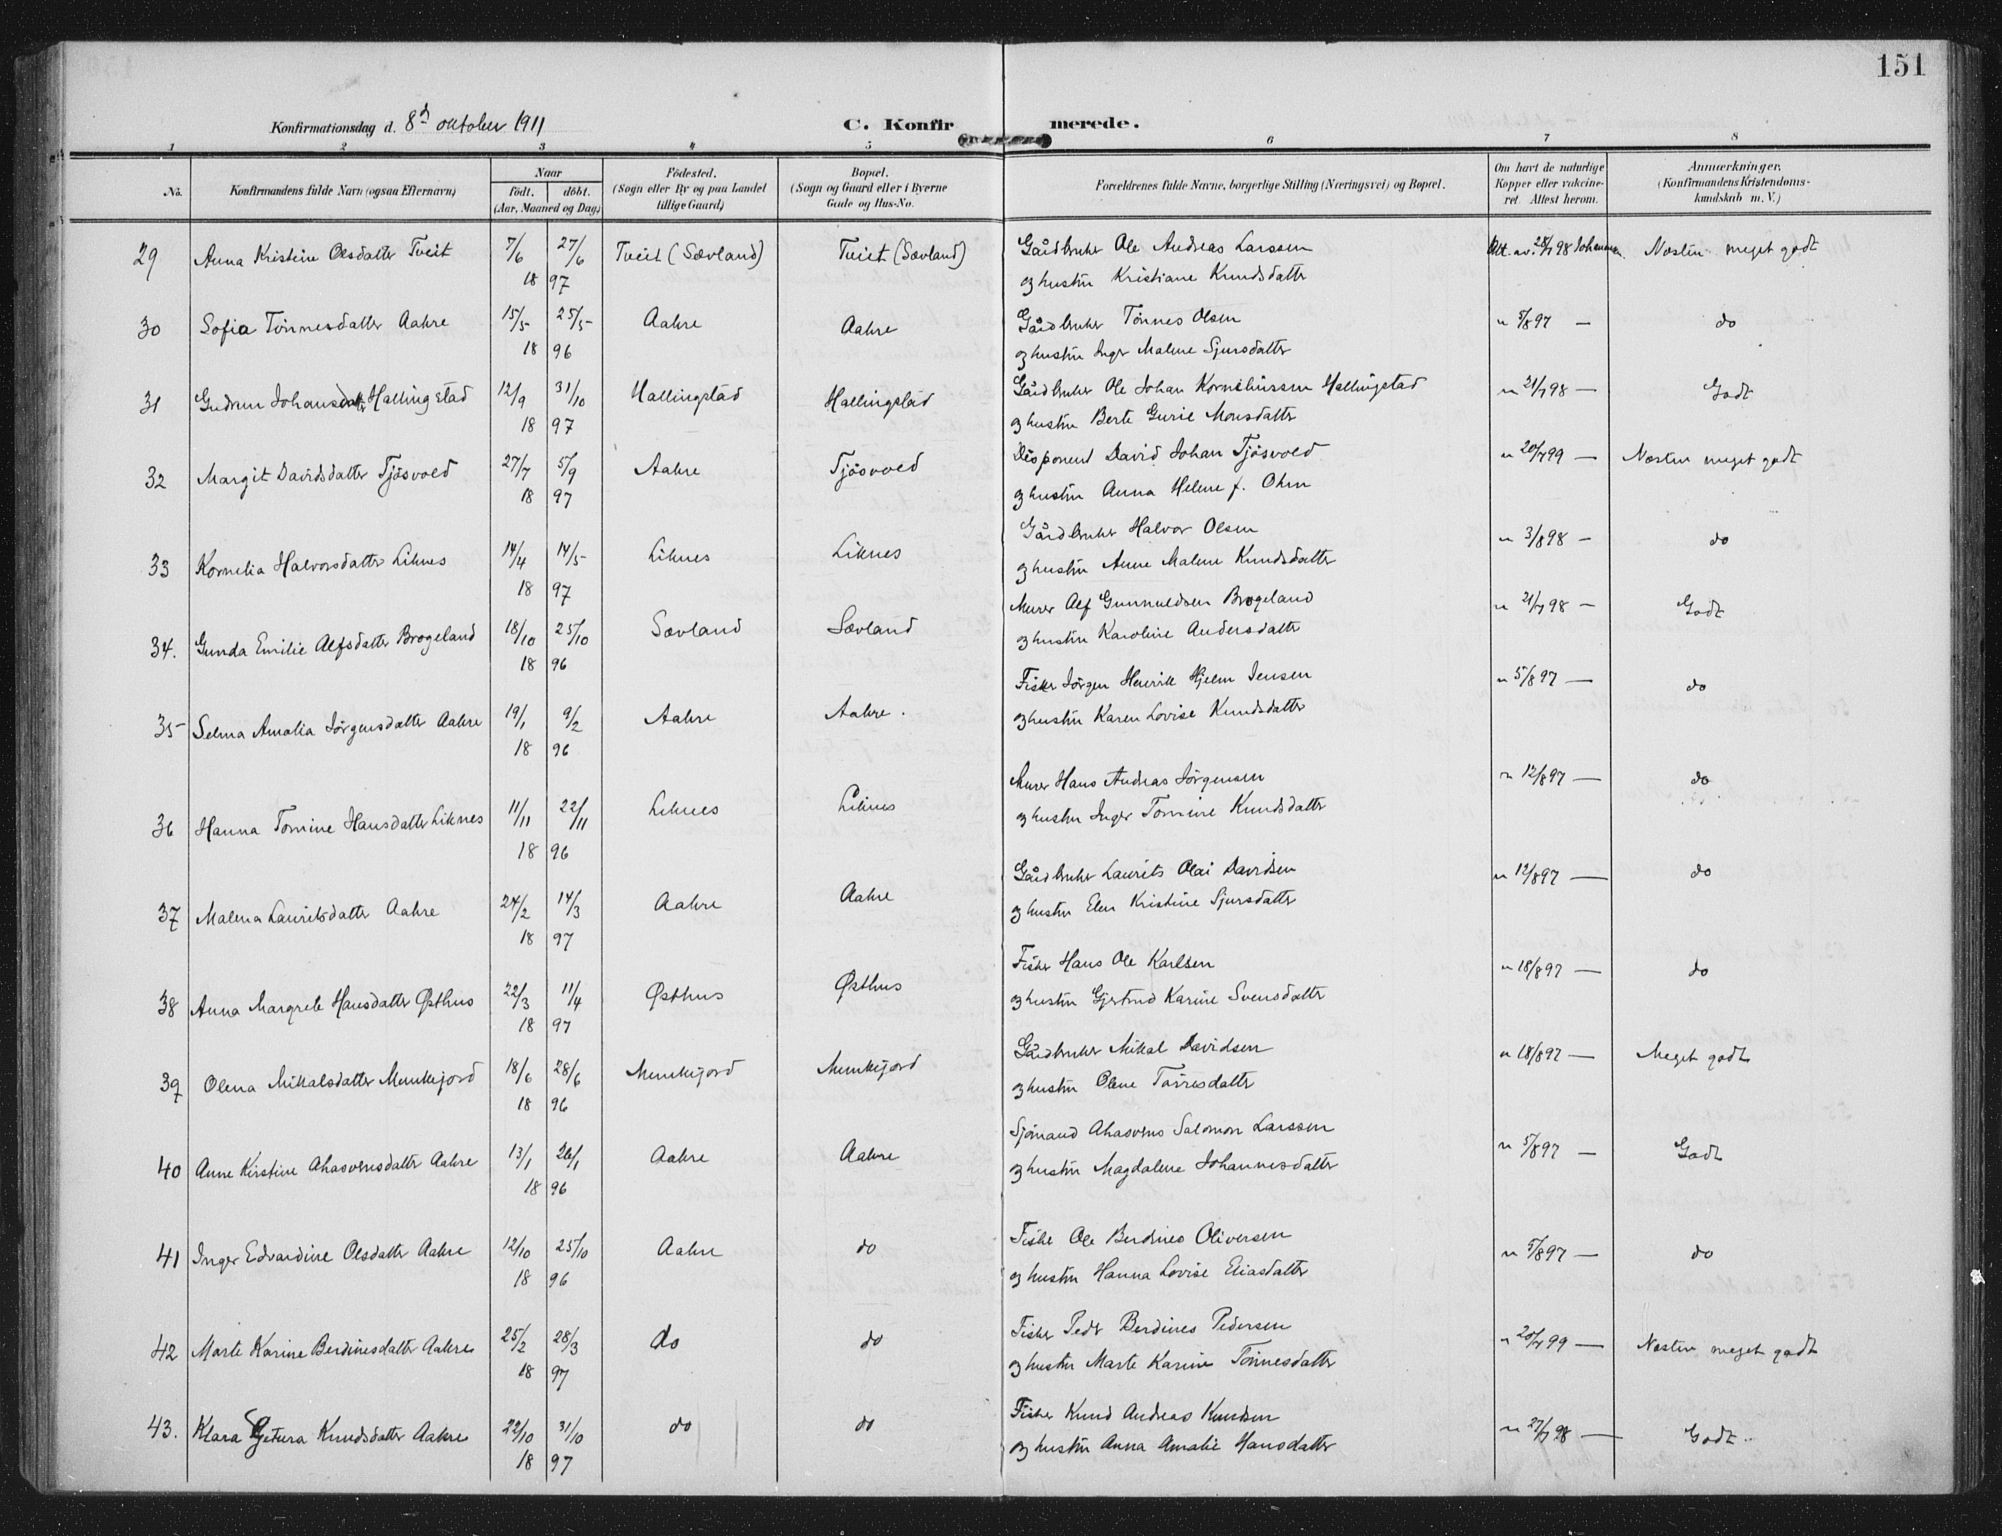 151
Konfirmationsdag d. 8d oktober 1911 C. Konfirmerede.
1 2 3 4 5 6 7 8
No. Konfirmandens fulde Navn (ogsaa Efternavn) Naar født. døbt. (Aar, Maaned og Dag.) Fødested. (Sogn eller By og paa Landet tillige Gaard.) Bopæl. (Sogn og Gaard eller i Byerne Gade og Hus-No. Forældrenes fulde Navne, borgerlige Stilling (Næringsvei) og Bopæl. Om havt de naturlige Kopper eller vakcineret. Attest herom. Anmærkninger. (Konfirmandens Kristendomskundskab m. V.)
29 Anna Kristine Olsdatter Tveit 7/6 27/6 Tveit (Sævland) Tveit (Sævland) Gårdbruker Ole Andreas Larssen Att. av 28/7 98 Johannesen. Næsten meget godt
18 97 og hustru Kristiane Knudsdatter
30 Sofia Tønnesdatter Aakre 15/5 25/5 Aakre Aakre Gårdbruker Tønnes Olsen " 5/8 97 — do
18 96 og hustru Inger Malene Sjursdatter
31 Gudrun Johansdatter Hallingstad 12/9 31/10 Hallingstad Hallingstad Gårdbruker Ole Johan Korneliussen Hallingstad " 21/7 98 — Godt
18 97 og hustru Berte Gurie Monsdatter
32 Margit Davidsdatter Tjøsvold 27/7 5/9 Aakre Tjøsvold Disponent David Johan Tjøsvold " 20/7 99 — Næsten meget godt
18 97 og hustru Anna Helene f. Ohm
33 Kornelia Halvorsdatter Liknes 14/4 14/5 Liknes Liknes Gårdbruker Halvor Olsen " 3/8 98 — do
18 97 og hustru Anne Malene Knudsdatter
34. Gunda Emilie Alfsdatter Brogeland 18/10 25/10 Sævland Sævland Murer Alf Gunnuldsen Brogeland " 21/7 98 — Godt
18 96 og hustru Karoline Andersdatter
35 Selma Amalia Jørgensdatter Aakre 19/1 9/2 Aakre Aakre. Fisker Jørgen Henrik Hjelm Jensen " 5/8 97 — do
18 96 og hustru Karen Lovise Knudsdatter
36 Hanna Tomine Hansdatter Liknes 11/11 22/11 Liknes Liknes Murer Hans Andreas Jørgensen " 12/8 97 — do
18 96 og hustru Inger Tomine Knudsdatter
37 Malena Lauritsdatter Aakre 24/2 14/3 Aakre Aakre Gårdbruker Laurits Olai Davidsen " 12/8 97 — do
18 97 og hustru Elen Kristine Sjursdatter
38 Anna Margrete Hansdatter Østhus 22/3 11/4 Østhus Østhus Fisker Hans Ole Karlsen " 18/8 97 — do
18 97 og hustru Gjertrud Karine Svensdatter
39 Olena Mikalsdatter Munkejord 18/6 28/6 Munkejord Munkejord Gårdbruker Mikal Davidsen " 18/8 97 — Meget godt
18 96 og hustru Olene Torresdatter
40 Anne Kirstine Ahasverusdatter Aakre 13/1 26/1 Aakre Aakre Sjømand Ahasverus Salomon Larssen " 5/8 97 — Godt
18 96 og hustru Magdalene Johannesdatter
41 Inger Edvardine Olsdatter Aakre 12/10 25/10 Aakre do Fisker Ole Berdines Oliversen " 5/8 97 — do
18 96 og hustru Hanna Lovise Eliasdatter
42 Marte Karine Berdinesdatter Aakre 25/2 28/3 do do Fisker Peder Berdines Pedersen " 20/7 99 — Næsten meget godt
18 97 og hustru Marte Karine Tønnesdatter
43. Klara Getura Knudsdatter Aakre 22/10 31/10 do do Fisker Knud Andreas Knudsen " 27/7 98 — Godt.
18 97 og hustru Anna Amalie Hansdatter